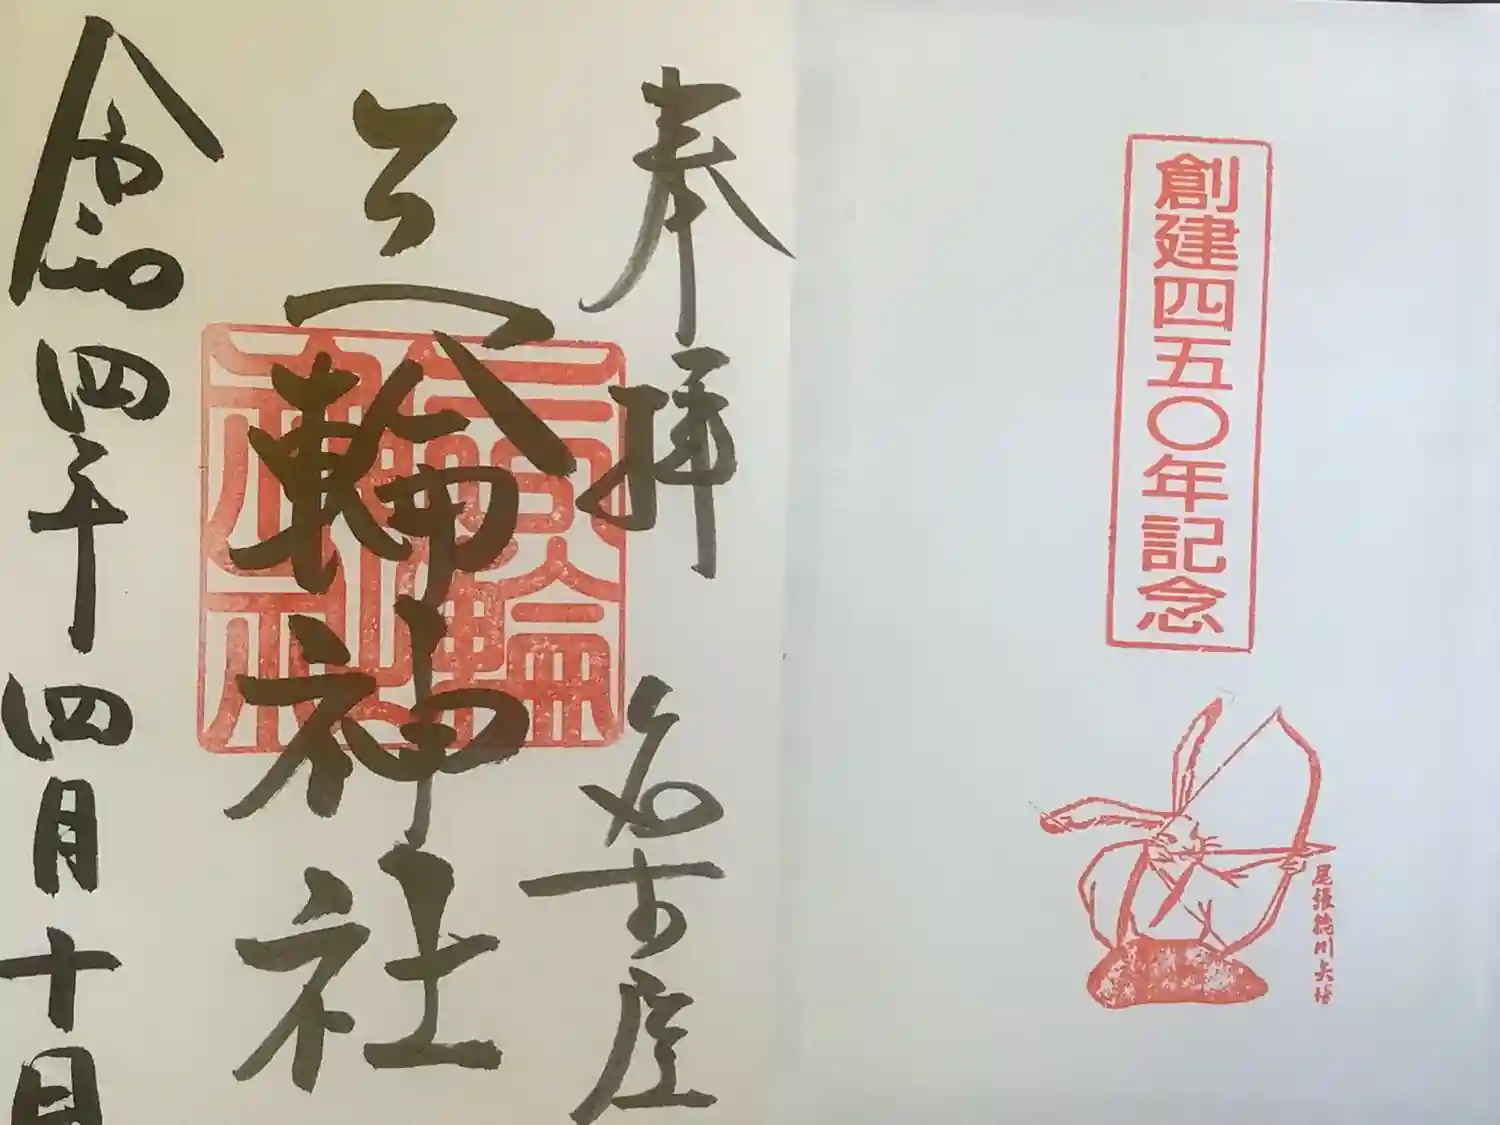 奉拝 名古屋
三輪神社
三輪神社
令和四年 四月十日
創建四五〇年記念
尾張徳川矢場